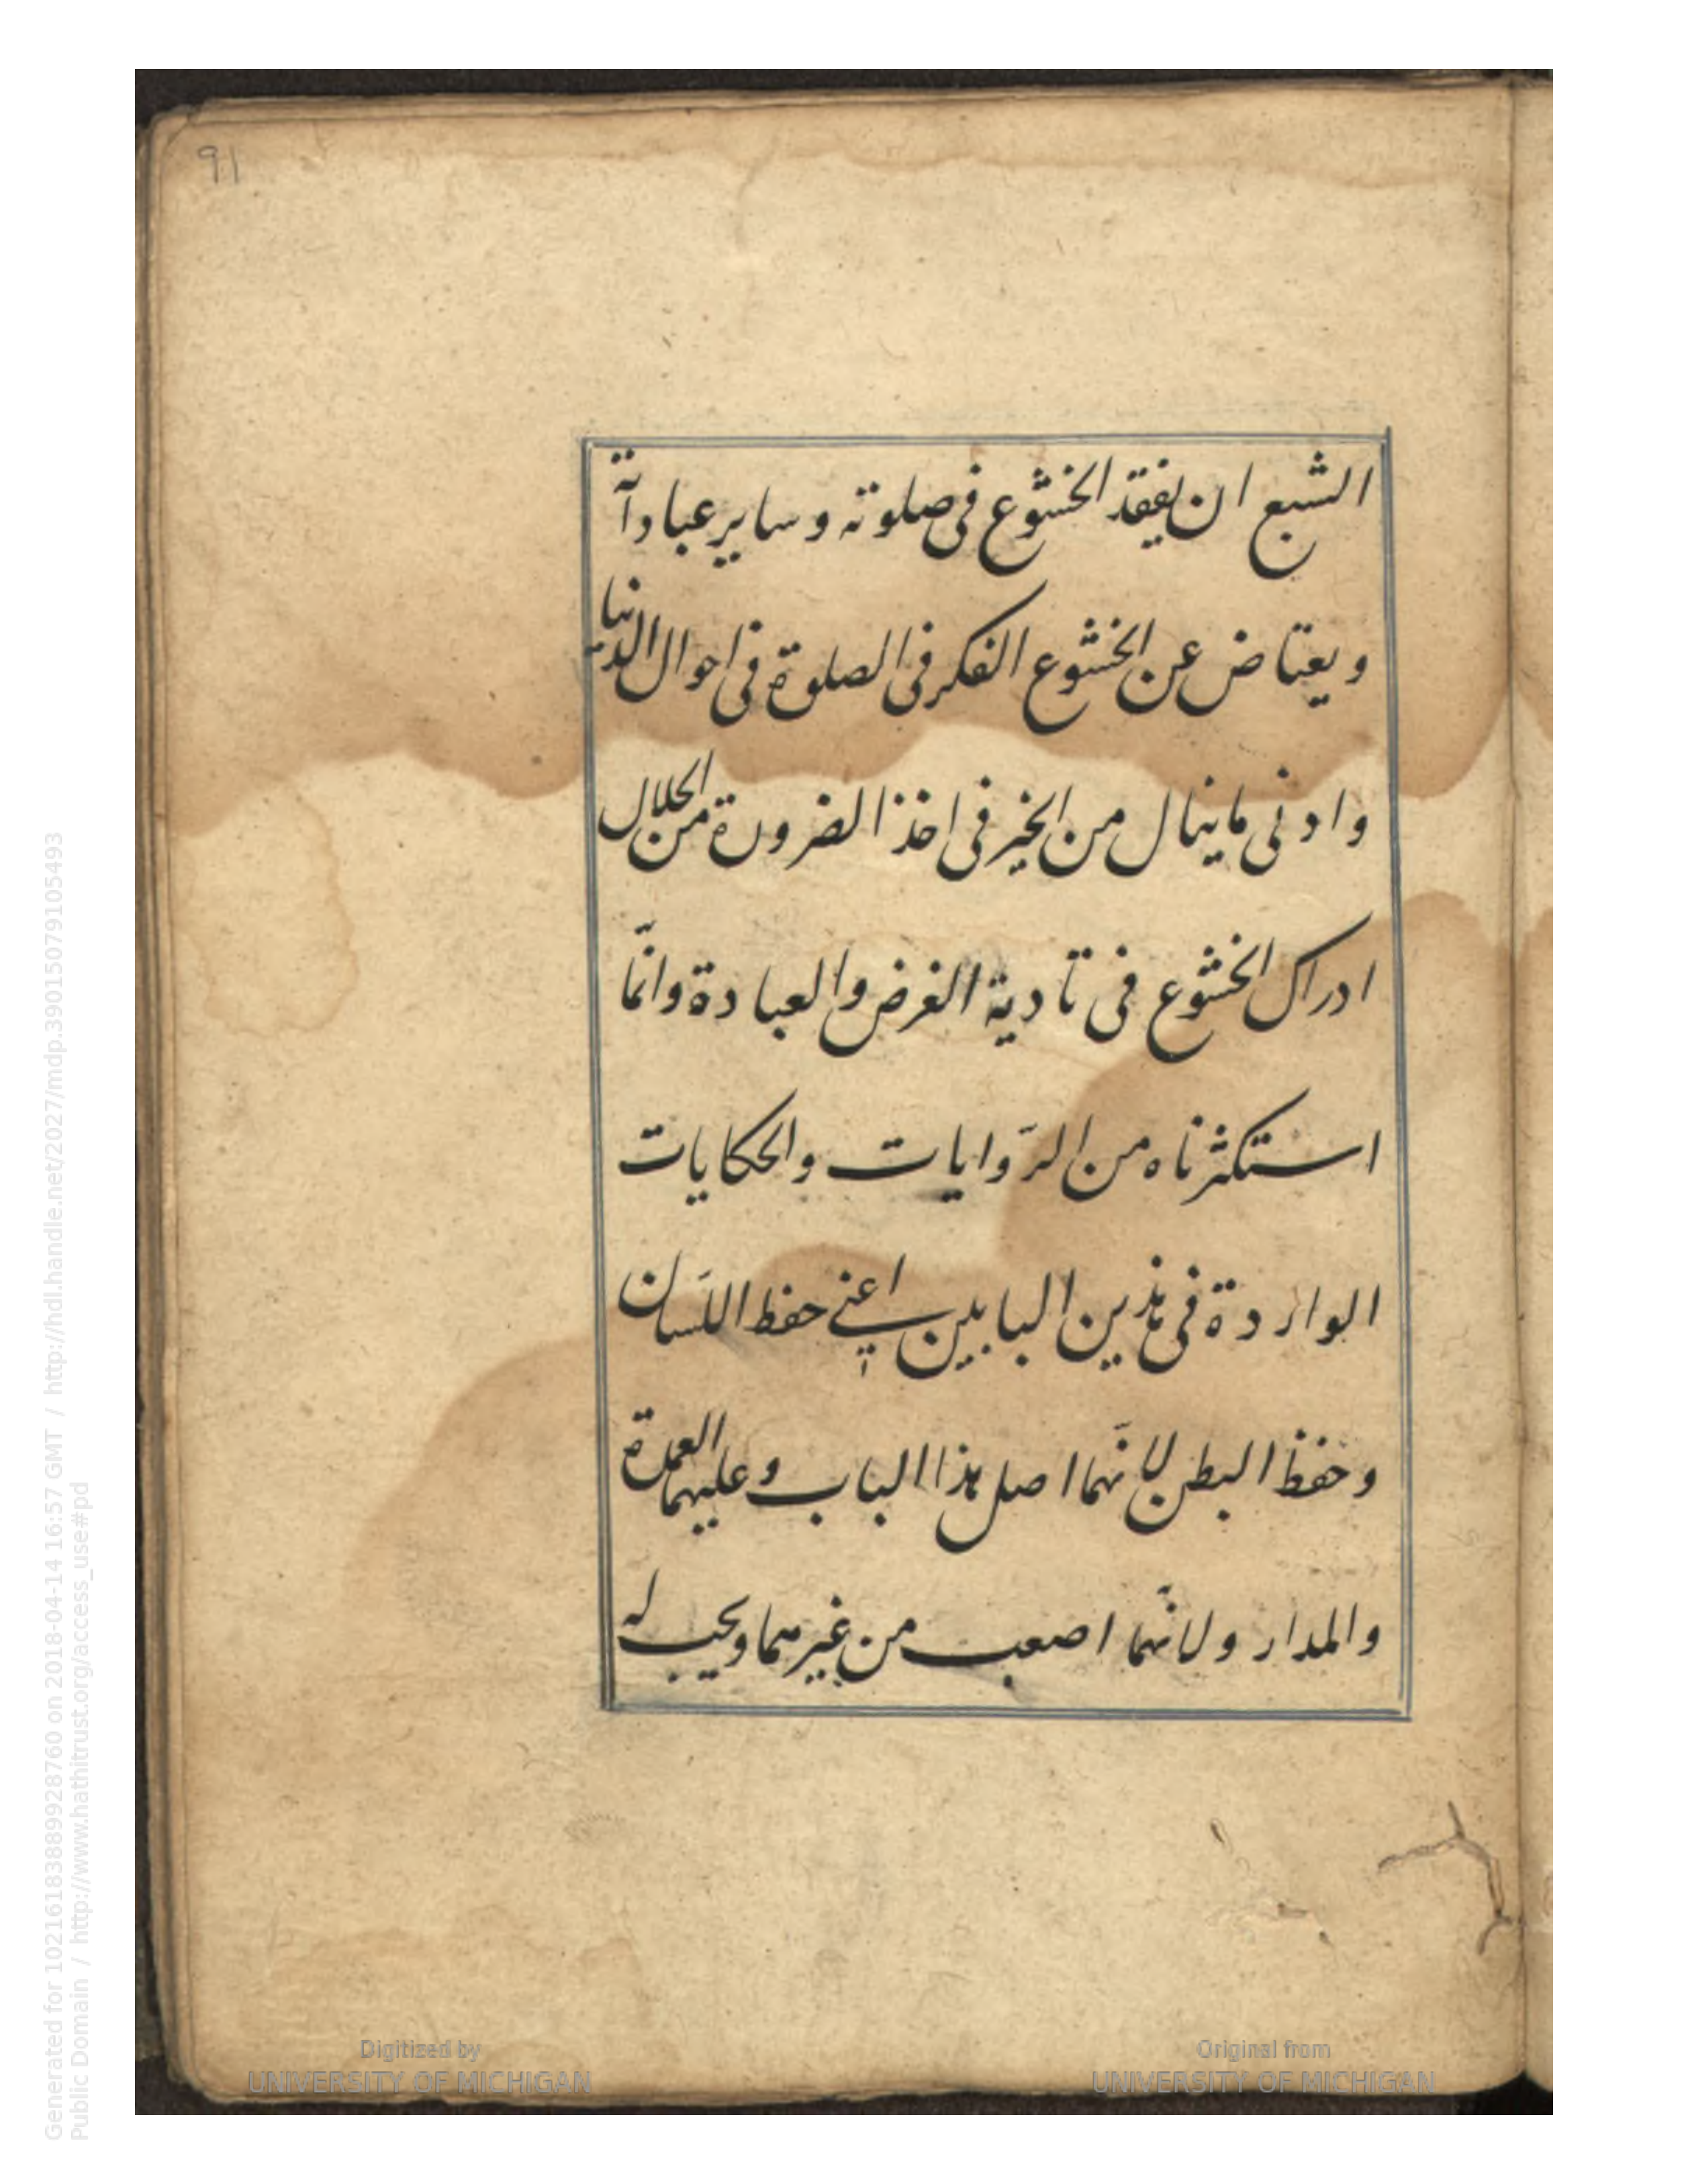 91
الشبع ان يفقد الخشوع فى صلوته و ساير عباداته
و يعتاض عن الخشوع الفكر فى الصلوة فى احوال الدنيا
و ادنى ما ينال من الخير فى اخذ الضرورة من الحلال
ادراك الخشوع فى تادية الفرض والعبادة وانّما
استكثرناه من الرّوايات والحكايات
الواردة فى هذين البابين اعنى حفظ اللّسان
و حفظ البطن لانّهما اصل هذا الباب و عليهما العمدة
والمدار ولانّهما اصعب من غيرهما ويجب له
Generated for 102161838899928760 on 2018-04-14 16:57 GMT / http://hdl.handle.net/2027/mdp.39015079105493
Public Domain / http://www.hathitrust.org/access_use#pd
Digitized by
UNIVERSITY OF MICHIGAN
Original from
UNIVERSITY OF MICHIGAN